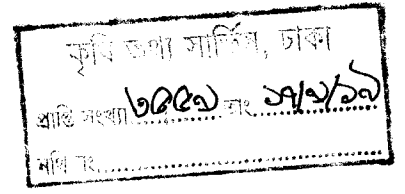 কৃষি তথ্য সার্ভিস, ঢাকা
প্রাপ্তি সংখ্যা ৩৫৫৯ তাং ১৭/৯/১৯
নথি নং